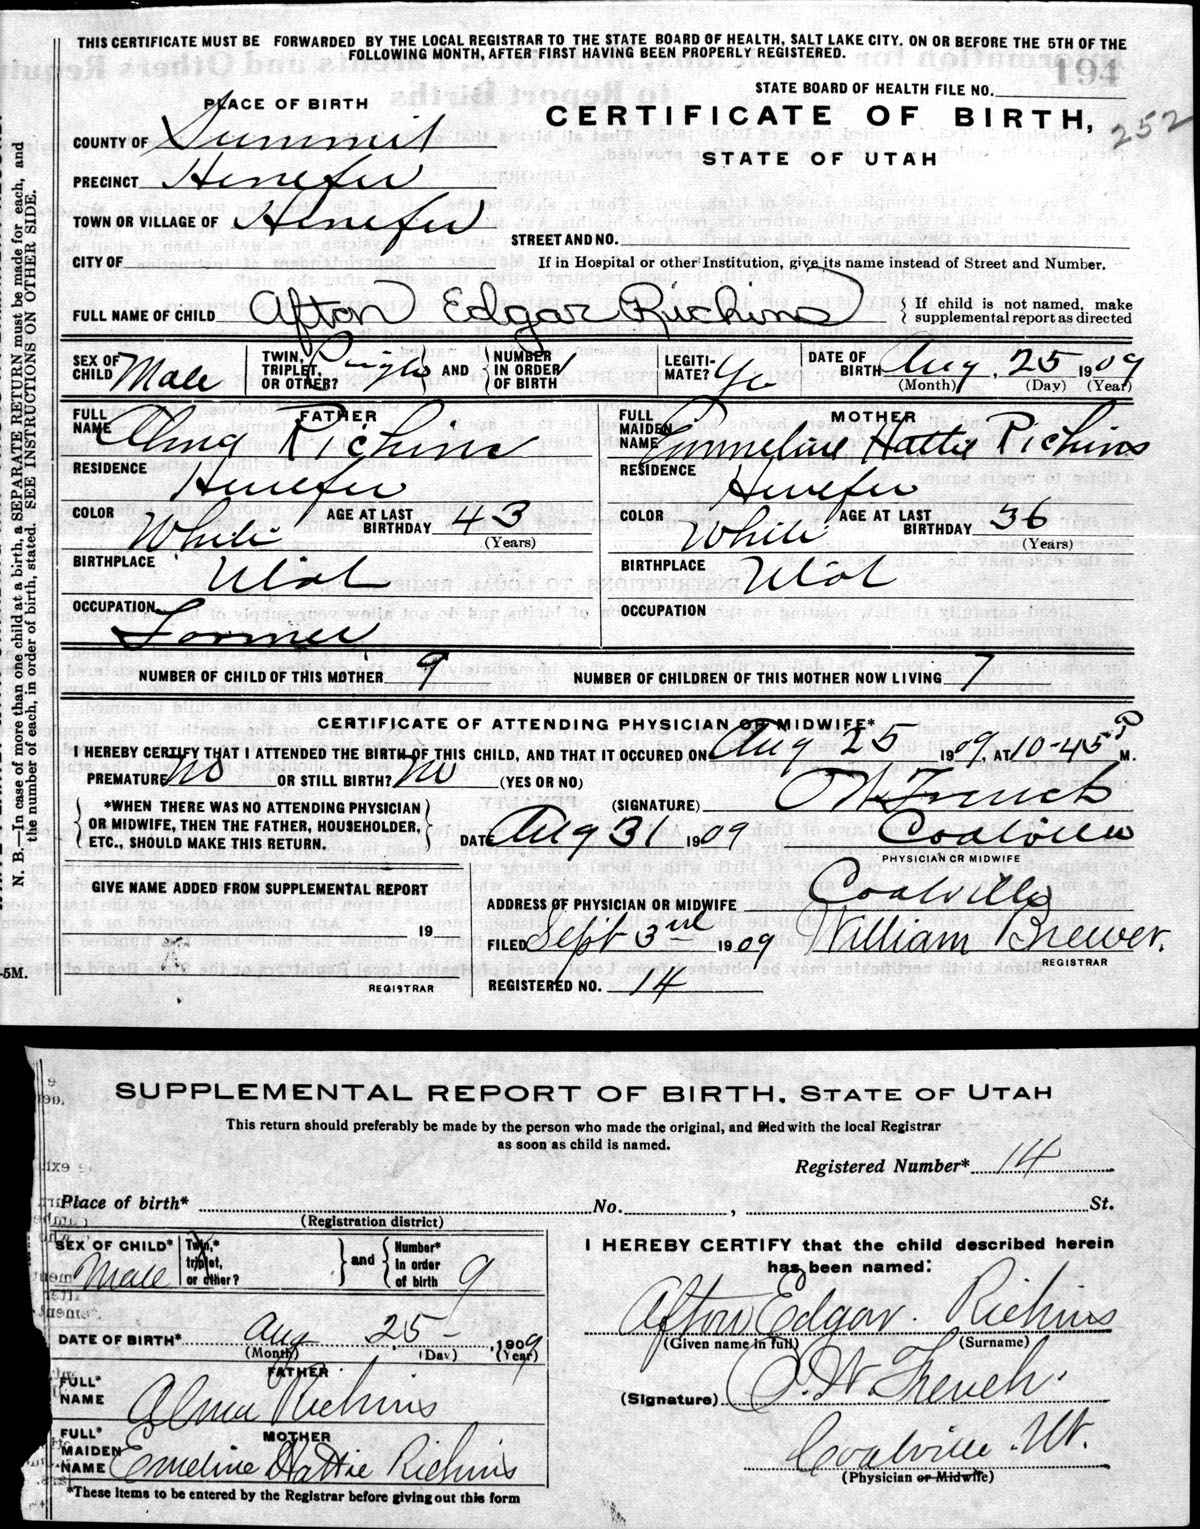 THIS CERTIFICATE MUST BE FORWARDED BY THE LOCAL REGISTRAR TO THE STATE BOARD OF HEALTH, SALT LAKE CITY, ON OR BEFORE THE 5TH OF THE
FOLLOWING MONTH, AFTER FIRST HAVING BEEN PROPERLY REGISTERED.
194
STATE BOARD OF HEALTH FILE NO.
PLACE OF BIRTH
CERTIFICATE OF BIRTH,
252
COUNTY OF Summit
STATE OF UTAH
PRECINCT Henefer
TOWN OR VILLAGE OF Henefer
STREET AND NO.
CITY OF
If in Hospital or other Institution, give its name instead of Street and Number.
FULL NAME OF CHILD Afton Edgar Richins
{ If child is not named, make
supplemental report as directed
SEX OF CHILD Male
TWIN, TRIPLET, OR OTHER? Single
AND
NUMBER IN ORDER OF BIRTH
LEGITIMATE? Yes
DATE OF BIRTH Aug. 25 1909
(Month) (Day) (Year)
FATHER
FULL NAME Alma Richins
RESIDENCE
Henefer
COLOR White AGE AT LAST BIRTHDAY 43
(Years)
BIRTHPLACE Utah
OCCUPATION
Farmer
MOTHER
FULL MAIDEN NAME Emmeline Hattie Richins
RESIDENCE
Henefer
COLOR White AGE AT LAST BIRTHDAY 36
(Years)
BIRTHPLACE Utah
OCCUPATION
NUMBER OF CHILD OF THIS MOTHER 9 NUMBER OF CHILDREN OF THIS MOTHER NOW LIVING 7
CERTIFICATE OF ATTENDING PHYSICIAN OR MIDWIFE*
I HEREBY CERTIFY THAT I ATTENDED THE BIRTH OF THIS CHILD, AND THAT IT OCCURED ON Aug 25 1909, AT 10-45 P M.
PREMATURE No OR STILL BIRTH? No (YES OR NO)
{ *WHEN THERE WAS NO ATTENDING PHYSICIAN
OR MIDWIFE, THEN THE FATHER, HOUSEHOLDER,
ETC., SHOULD MAKE THIS RETURN. }
(SIGNATURE) O W French
DATE Aug 31 1909 Coalville
PHYSICIAN OR MIDWIFE
GIVE NAME ADDED FROM SUPPLEMENTAL REPORT
19
REGISTRAR
ADDRESS OF PHYSICIAN OR MIDWIFE Coalville
FILED Sept 3rd 1909 William Brewer.
REGISTRAR
REGISTERED NO. 14
N. B.—In case of more than one child at a birth, a SEPARATE RETURN must be made for each, and
the number of each, in order of birth, stated. SEE INSTRUCTIONS ON OTHER SIDE.
-5M.
SUPPLEMENTAL REPORT OF BIRTH, STATE OF UTAH
This return should preferably be made by the person who made the original, and filed with the local Registrar
as soon as child is named.
Registered Number* 14
Place of birth* No. , St.
(Registration district)
SEX OF CHILD* Male
Twin,* triplet, or other?
and
Number* in order of birth 9
DATE OF BIRTH* Aug 25- , 1909
(Month) (Day) (Year)
FATHER
FULL* NAME Alma Richins
MOTHER
FULL* MAIDEN NAME Emeline Hattie Richins
*These items to be entered by the Registrar before giving out this form
I HEREBY CERTIFY that the child described herein
has been named:
Afton Edgar. Richins
(Given name in full) (Surname)
(Signature) O. W French.
Coalville Ut.
(Physician or Midwife)